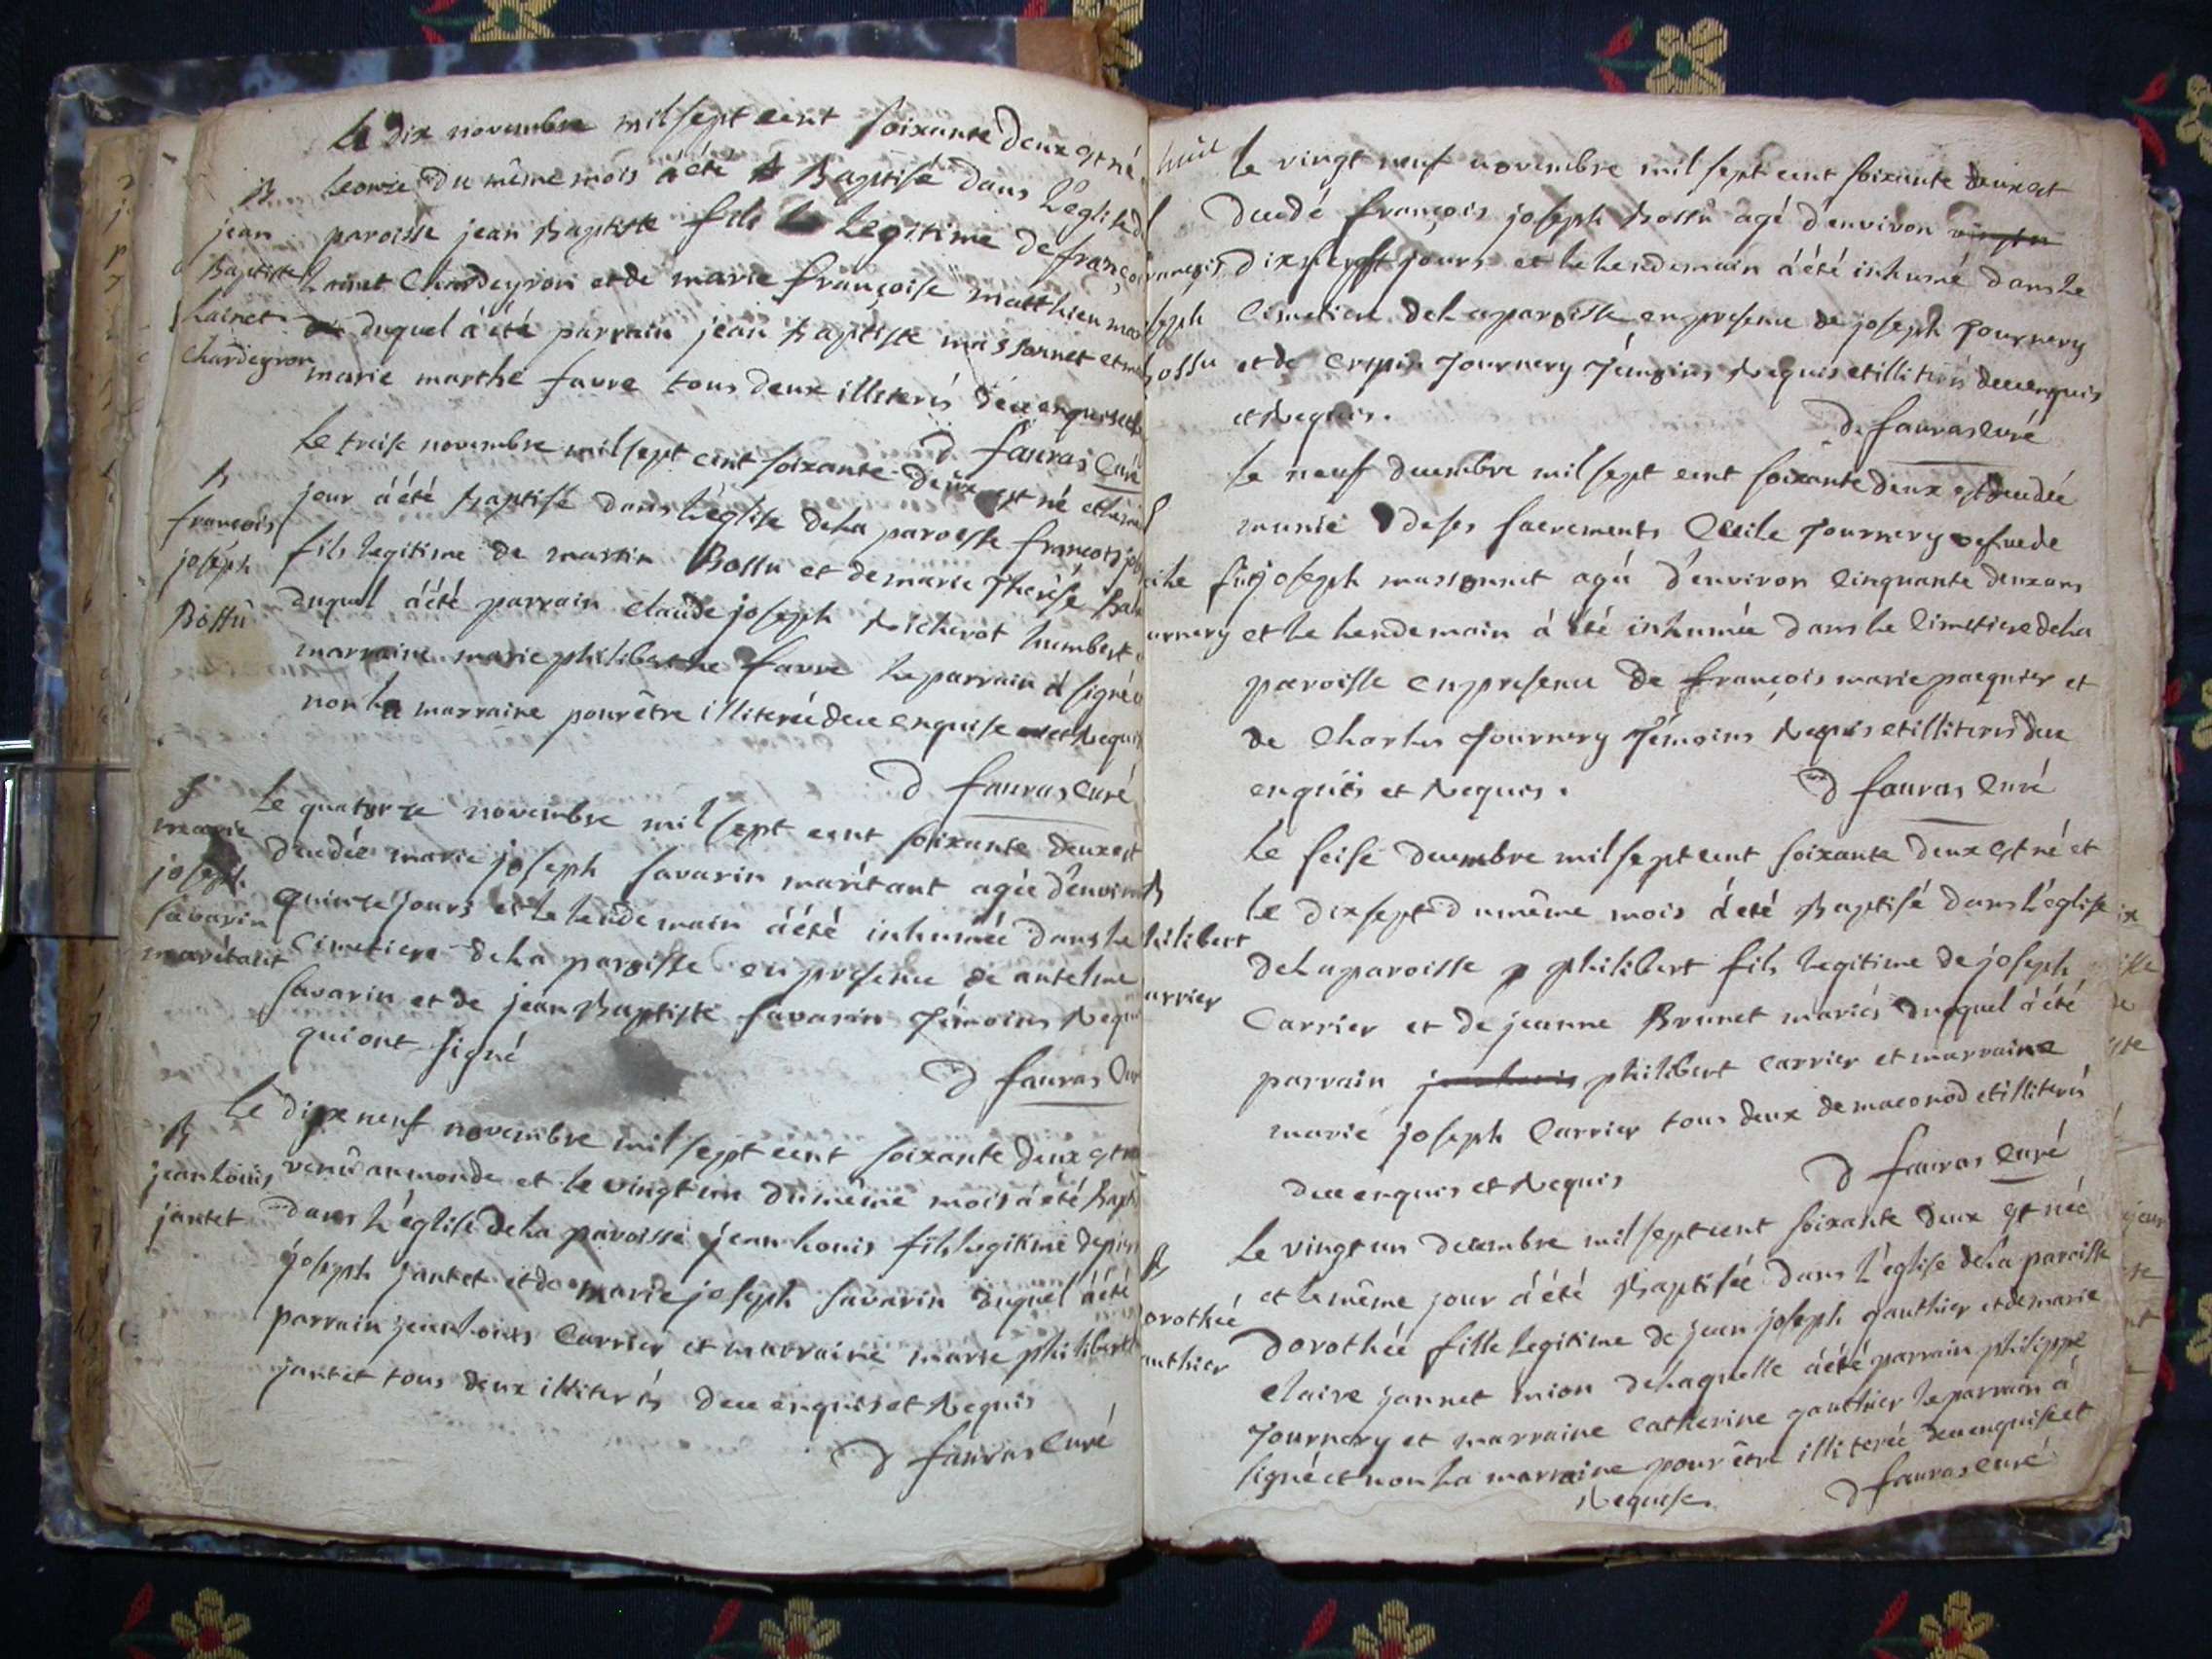 Le dix novembre mil sept cent soixante deux est né
B
jean
Baptiste
Lainet
Chardeyron
le onze du même mois á été Baptisé dans L'eglise d
paroisse jean Baptiste fils Legitime de franco
Lainet Chardeyron et de marie françoise matthieu mar
duquel á été parrain jean Baptiste massonet et ma
marie marthe favre tous deux illiterés de ce enquis et
d fauras Curé
B
françois
joseph
Bossu
Le treise novembre mil sept cent soixante deux est né et le mê
jour á été Baptisé dans L'église de La paroisse francois jos
fils legitime de martin Bossu et de marie Therése
duquel á été parrain claude joseph Richerot humbert
marraine marie philiberthe favre Le parrain á signé
non La marraine pour être illiterée de ce enquise et Requi
d fauras Curé
S
marie
joseph
savarin
marétant
Le quatorze novembre mil sept cent soixante deux est
decedée marie joseph savarin marétant agée d'environ
quinze jours et le lendemain á été inhumée dans Le
cimetiere de La paroisse en presence de antelme
savarin et de jean Baptiste savarin Témoins Requi
qui ont signé
d fauras Cur
B
jean Louis
jantet
Le dix neuf novembre mil sept cent soixante deux est
venu au monde et le vingt un du même mois á été Bapt
dans L'église de La paroisse jean Louis fils legitime de pier
joseph jantet et de marie joseph savarin duquel á été
parrain jean Louis Carrier et marraine marie philibert
jantet tous deux illiterés de ce enquis et Requis
d fauras Curé
huit
françois
seph
Bossu
Le vingt neuf novembre mil sept cent soixante deux est
decedé françois joseph Bossu agé d'environ
dix sept jours et le lendemain á été inhumé dans Le
Cimetiere de La paroisse en presence de joseph Tournery
et de Crepin Tournery Témoins Requis et illiterés de ce enquis
et Requis.
d. fauras Curé
cile
urnery
Le neuf decembre mil sept cent soixante deux est decedée
munie de ses sacrements Cecile Tournery vefve de
feu joseph massonnet agée d'environ Cinquante deux ans
et Le lendemain á été inhumée dans Le Cimetiere de La
paroisse en presence de françois marie pacquier et
de Charles Tournery Témoins Requis et illiterés de ce
enquis et Requis.
d fauras Curé
B
hilibert
arrier
Le seise decembre mil sept cent soixante deux est né et
Le dix sept du même mois á été Baptisé dans L'église
de La paroisse p philibert fils Legitime de joseph
Carrier et de jeanne Brunet mariés duquel á été
parrain philibert Carrier et marraine
marie joseph Carrier tous deux de maconod et illiterés
de ce enquis et Requis
d fauras Curé
B
orothée
authier
Le vingt un decembre mil sept cent soixante deux est née
et le même jour á été Baptisée dans L'église de La paroisse
Dorothée fille Legitime de jean joseph gauthier et de marie
claire jannet mion de Laquelle á été parrain philippe
Tournery et marraine Catherine gauthier Le parrain á
signé et non La marraine pour être illiterée de ce enquise et
Requise.
d fauras Curé